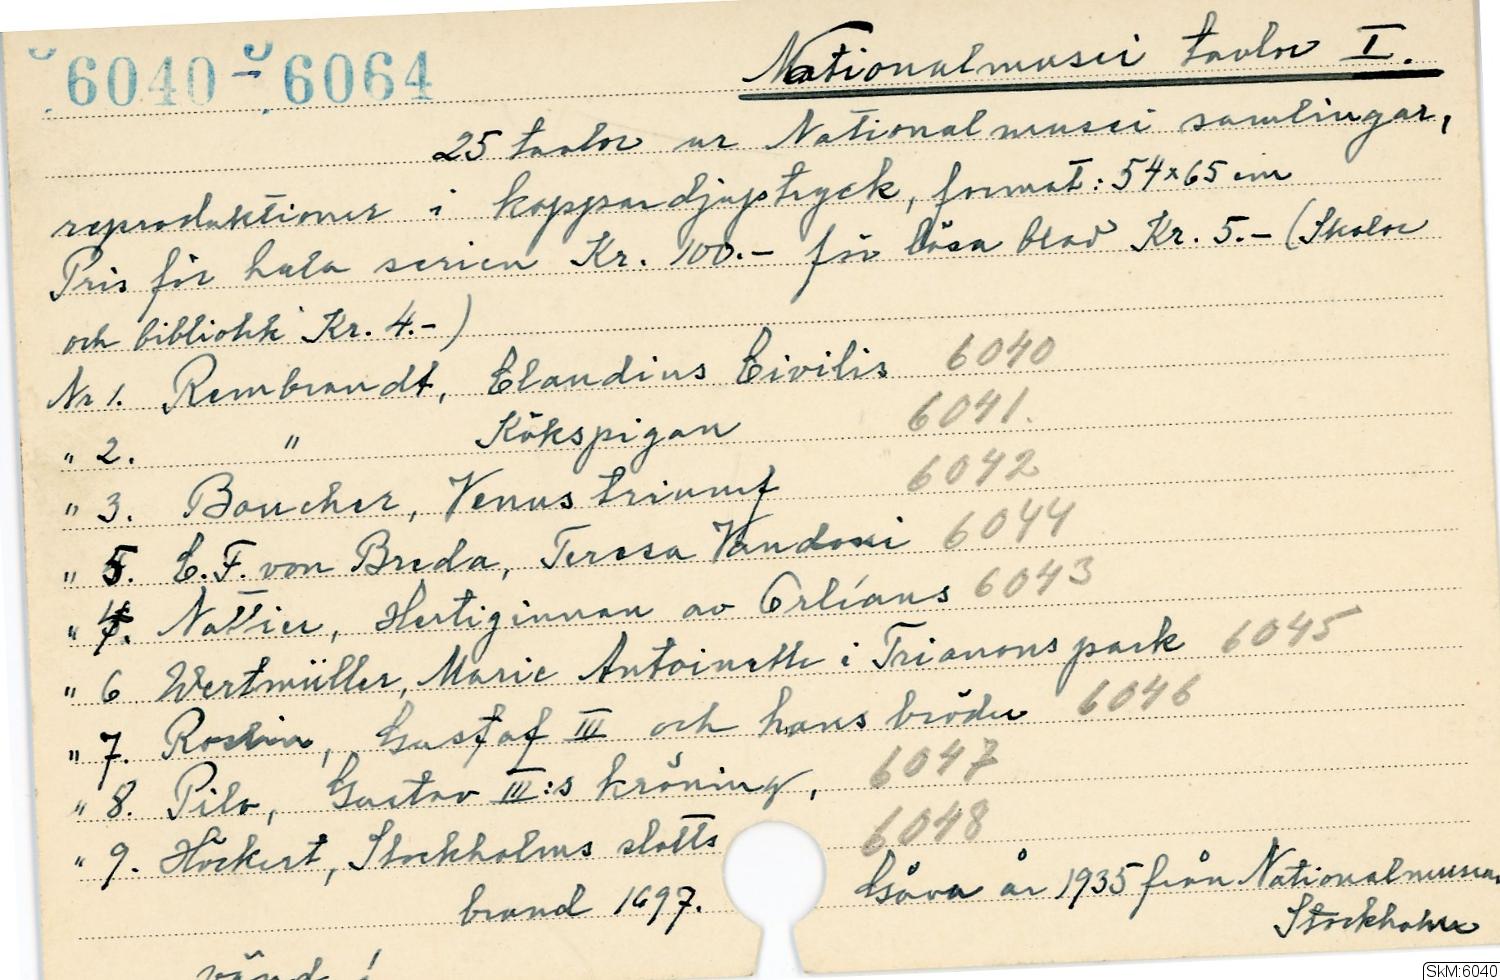 6040 - 6064
Nationalmusei tavlor I.
25 tavlor ur Nationalmusei samlingar,
reproduktioner i koppardjuptryck, format: 54x65 cm
Pris för hela serien Kr. 100.- för lösa blad Kr. 5.- (Skolor
och bibliotek Kr. 4.-)
Nr 1. Rembrandt, Claudius Civilis 6040
" 2. " Kökspigan 6041.
" 3. Boucher, Venus triumf 6042
" 5. C.F. von Breda, Teresa Vandoni 6044
" 4. Nattier, Hertiginnan av Orléans 6043
" 6 Wertmüller, Marie Antoinette i Trianons park 6045
" 7. Roslin, Gustaf III och hans bröder 6046
" 8. Pilo, Gustav III:s kröning, 6047
" 9. Höckert, Stockholms slotts 6048
brand 1697.
Gåva år 1935 från Nationalmuseum
Stockholm
vänd!
SkM:6040